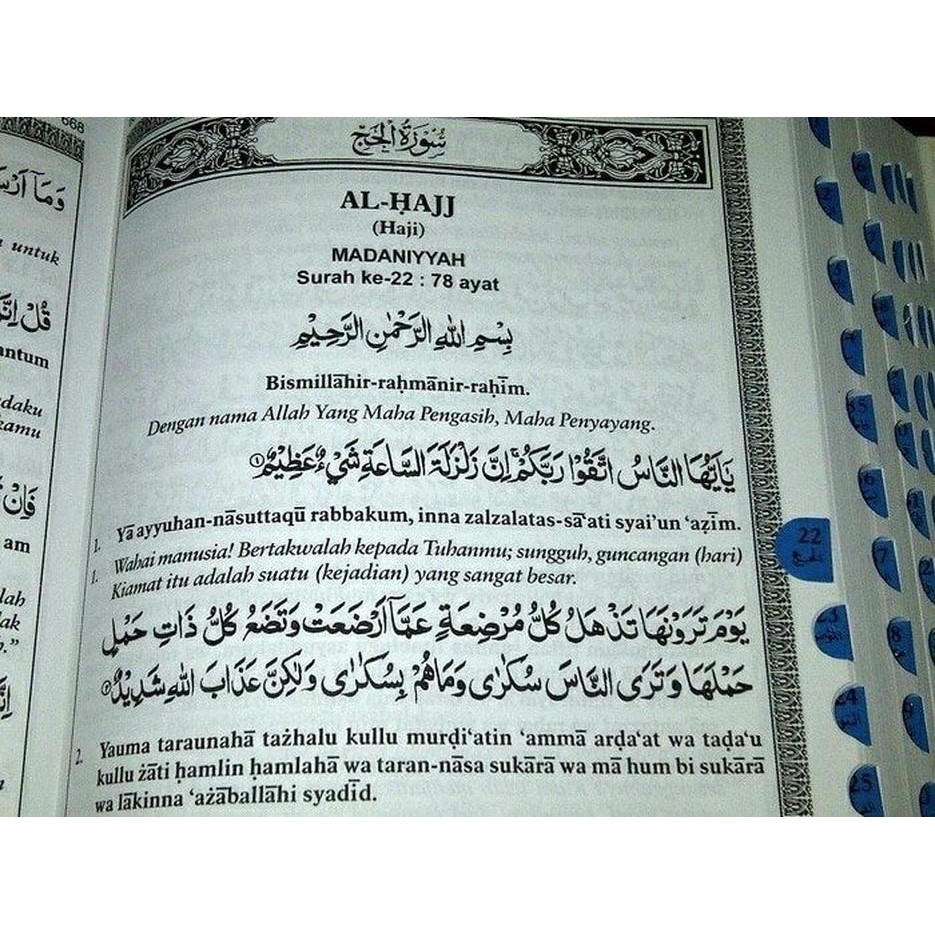 668
وَمَآ
untuk
قُلْ
antum
daku
kamu
فَاِنْ
am
سُوْرَةُ الْحَجّ
AL-ḤAJJ
(Haji)
MADANIYYAH
Surah ke-22 : 78 ayat
بِسْمِ اللّٰهِ الرَّحْمٰنِ الرَّحِيْمِ
Bismillāhir-raḥmānir-raḥīm.
Dengan nama Allah Yang Maha Pengasih, Maha Penyayang.
يٰٓاَيُّهَا النَّاسُ اتَّقُوْا رَبَّكُمْۚ اِنَّ زَلْزَلَةَ السَّاعَةِ شَيْءٌ عَظِيْمٌ ١
1. Yā ayyuhan-nāsuttaqū rabbakum, inna zalzalatas-sā‘ati syai'un ‘aẓīm.
1. Wahai manusia! Bertakwalah kepada Tuhanmu; sungguh, guncangan (hari)
Kiamat itu adalah suatu (kejadian) yang sangat besar.
يَوْمَ تَرَوْنَهَا تَذْهَلُ كُلُّ مُرْضِعَةٍ عَمَّآ اَرْضَعَتْ وَتَضَعُ كُلُّ ذَاتِ حَمْلٍ
حَمْلَهَا وَتَرَى النَّاسَ سُكٰرٰى وَمَا هُمْ بِسُكٰرٰى وَلٰكِنَّ عَذَابَ اللّٰهِ شَدِيْدٌ ٢
2. Yauma taraunahā tażhalu kullu murḍi‘atin ‘ammā arḍa‘at wa taḍa‘u
kullu żāti ḥamlin ḥamlahā wa taran-nāsa sukārā wa mā hum bi sukārā
wa lākinna ‘ażāballāhi syadīd.
22
الحج
23
24
25